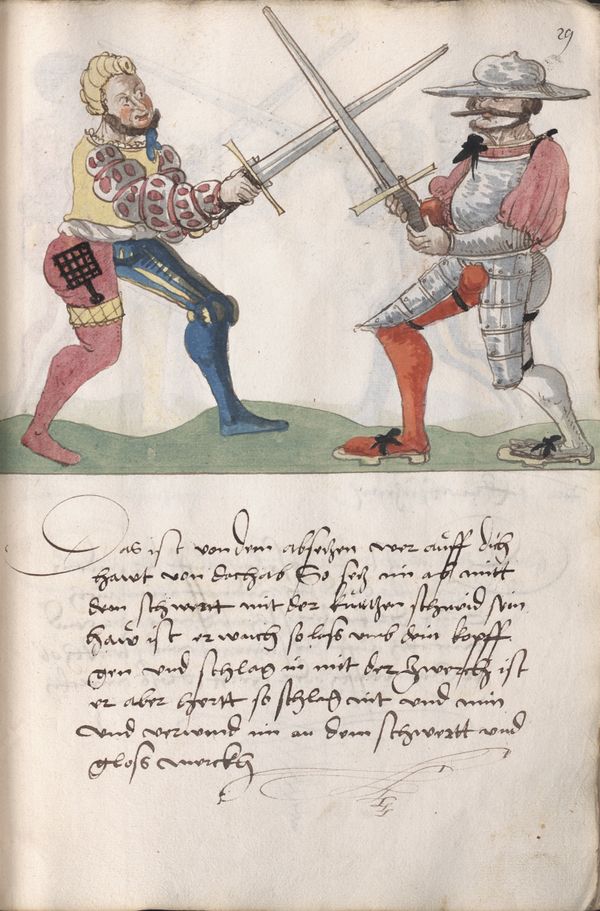 29
Das ist von dem absetzen wer auff dich
hawt von dachab So setz im ab mitt
dem schwertt mit der kurtzen schneid sein
haw ist er waich so loss umb dein kopff
gen und schlag in mit der zwerch ist
er aber hertt so schlag nit und win
und verwind im an dem schwertt und
gloss merckh